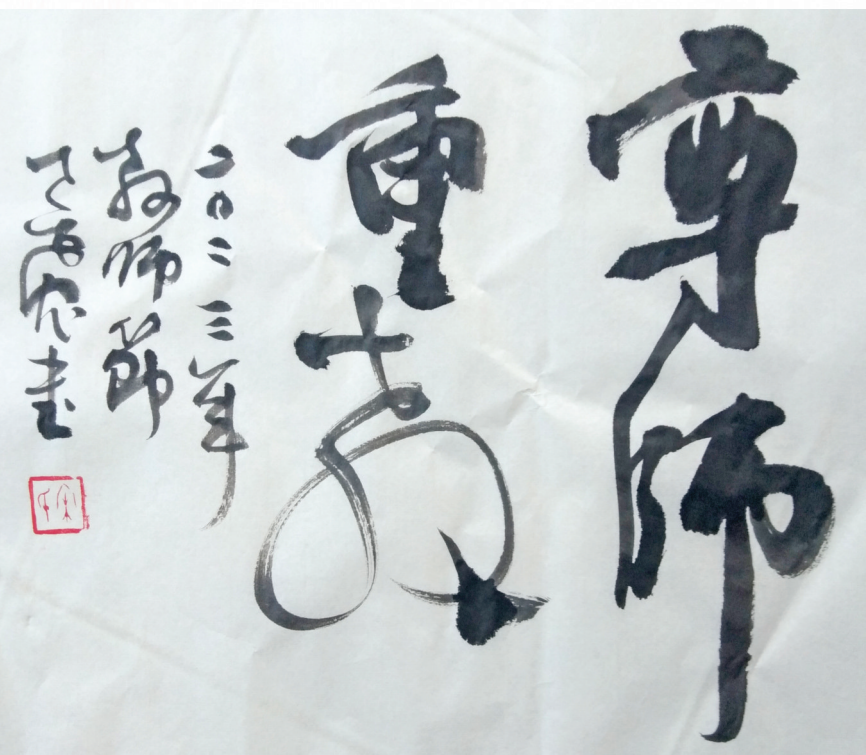 尊师
重教
二〇二三年
教师節
书